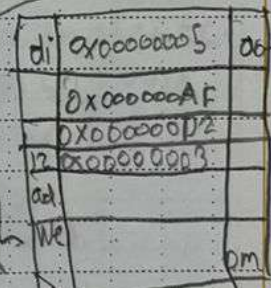 di 0x00000005 do
0x000000AF
0x000000D2
12 0x00000003
ad
We
om